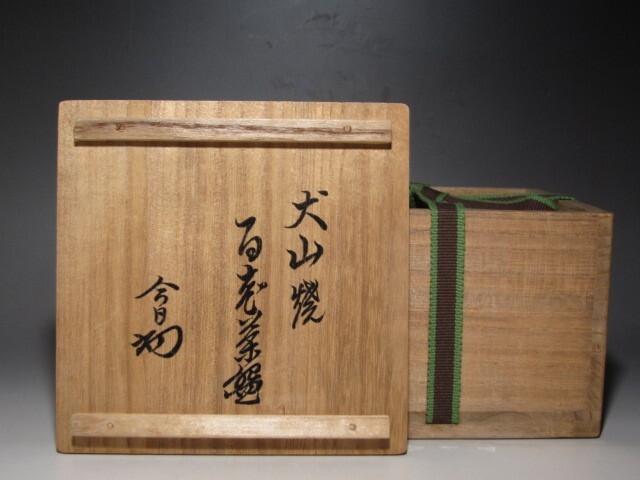 犬山燒
百老茶碗
今日